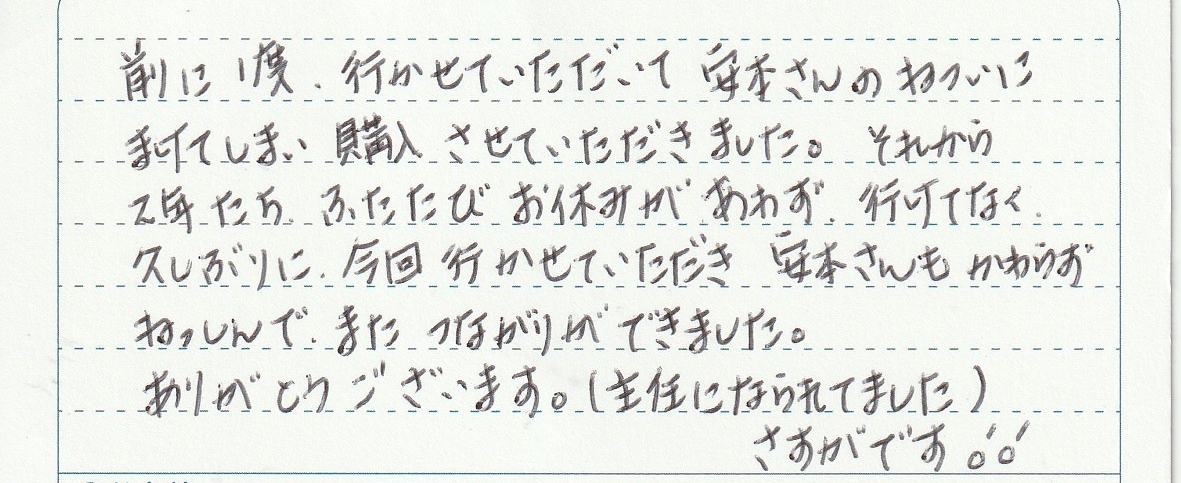 前に1度、行かせていただいて 安本さんの ねついに
まけてしまい 購入 させていただきました。 それから
2年 たち、ふたたび お休みが あわず、行けてなく、
久しぶりに、今回 行かせていただき 安本さんも かわらず
ねっしんで、また つながりが できました。
ありがとう ございます。(主任になられてました)
さすがです!!